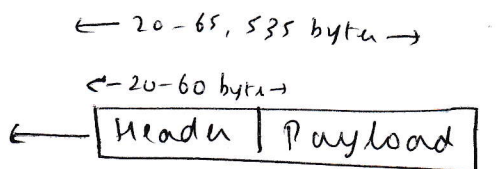 20-65, 535 bytes
20-60 bytes
Header Payload